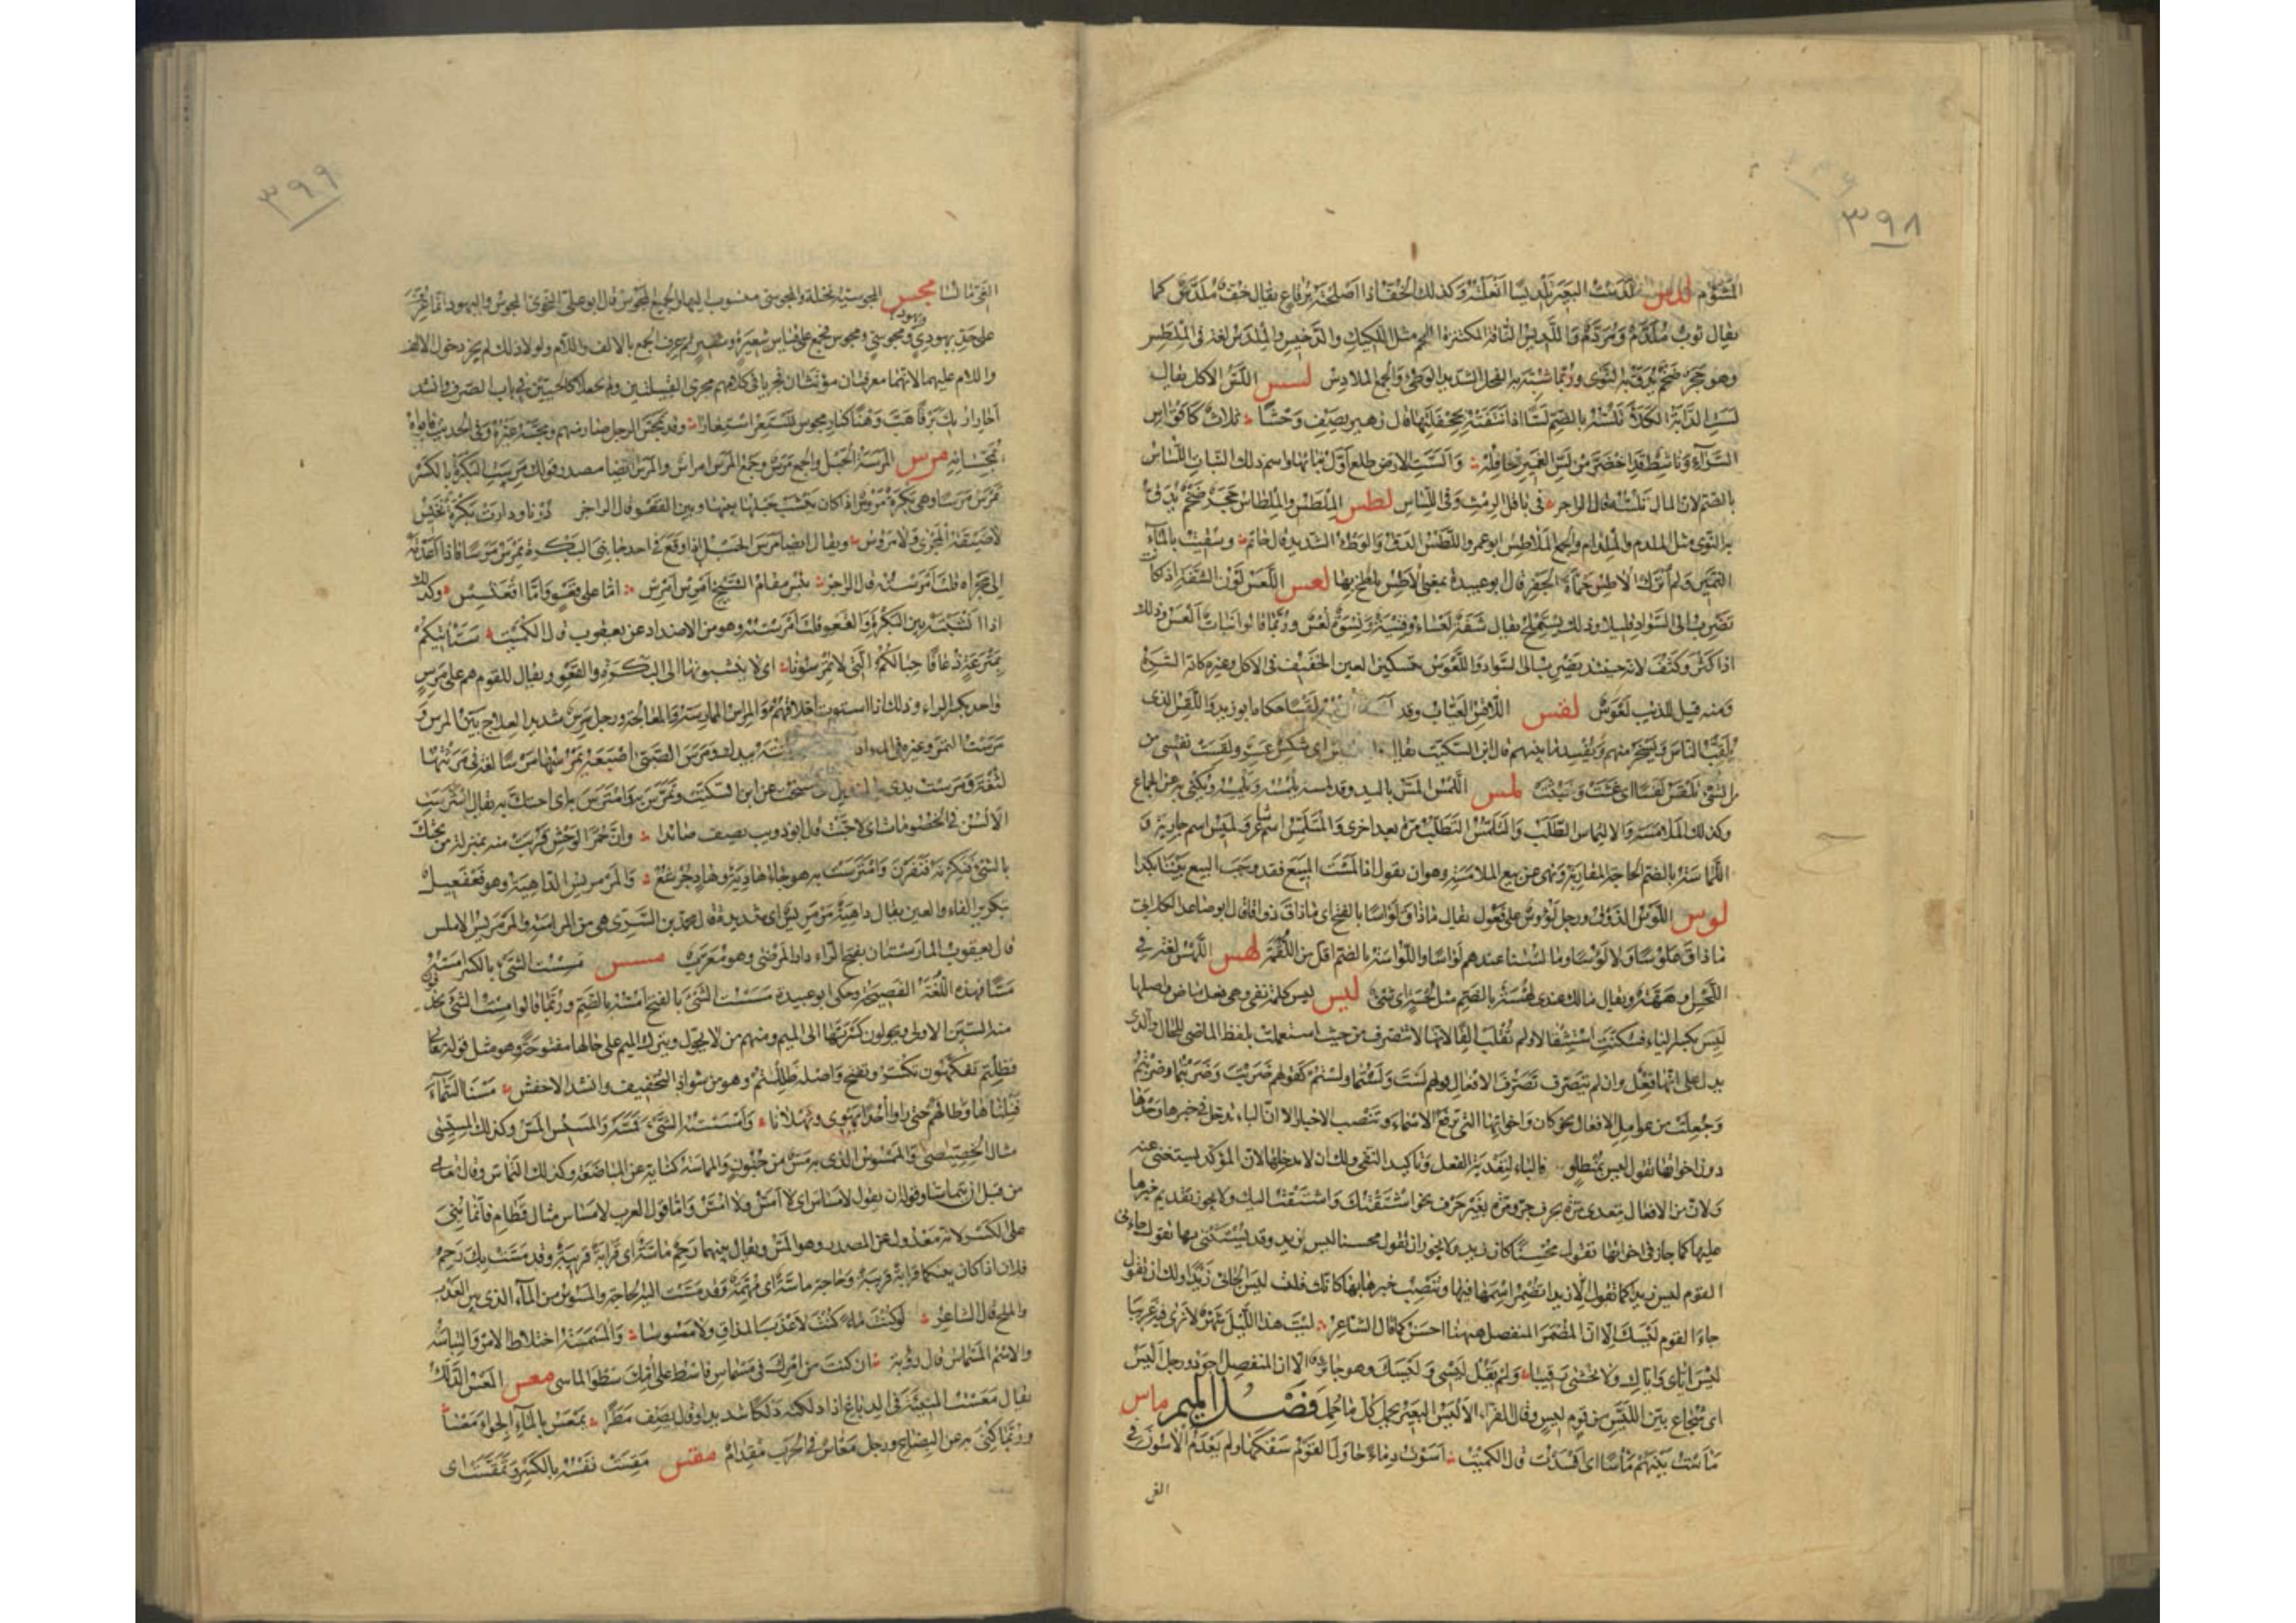 ٣٩٨
المشؤم لدس لدّست البعير تلديسا انعلته وكذلك الخف اذا اصلحته برقاع يقال خف ملدّس كما
يقال ثوب ملدّم ومردّم واللديس الناقة المكتنزة اللحم مثل اللكيك والدخيس والملدس لغة في الملطس
وهو حجر ضخم يدق به النوى وربما شبه به الفحل الشديد الوطئ والجمع الملادس لسس اللسّ الاكل يقال
لسّت الدابة الكلأ تلسّه بالضم لسّا اذا نتفته بجحفلتها قال زهير يصف وحشا ثلاث كاقواس
السراء وناشط قد اخضر من لسّ الغمير جحافله والسّت الارض طلع اول نباتها واسم ذلك النبات اللساس
بالضم لان المال تلسّه قال الراجز في باقل الرمث وفي اللساس لطس الملطس والملطاس حجر ضخم يدق
به النوى مثل الملدم والملدام والجمع الملاطس ابو عمرو اللطس الدق والوطء الشديد قال حاتم وسقيت بالماء
النمير ولم اترك الاطس حمأة الجفر قال ابو عبيدة بمعنى الاطس اتلطخ بها لعس اللعس لون الشفة اذا كانت
تضرب الى السواد قليلا وذلك يستملح يقال شفة لعساء وفتية ونسوة لعس وربما قالوا نبات العس وذلك
اذا كثر وكثف لانه حينئذ يضرب الى السواد واللعوس بتسكين العين الخفيف في الاكل وغيره كانه الشره
ومنه قيل للذئب لعوس لقس اللاقس العياب وقد لقسا حكاه ابو زيد واللقس الذي
يلقب الناس ويسخر منهم ويفسد ما بينهم قال ابن السكيت يقال اي شكس عسر ولقست نفسي من
الشئ تلقس لقسا اي غثت وخبثت لمس اللمس المس باليد وقد لمسه يلمسه ويلمسه ويكنى به عن الجماع
وكذلك الملامسة والالتماس الطلب والتلمس التطلب مرة بعد اخرى والمتلمس اسم شاعر ولميس اسم جارية و
اللماسة بالضم الحاجة المقاربة ونهى عن بيع الملامسة وهو ان يقول اذا لمست المبيع فقد وجب البيع بيننا بكذا
لوس اللوس الذوق ورجل لؤوس على فعول يقال ما ذاق لواسا بالفتح اي ما ذاق ذواقا قال ابو صاعد الكلابي
ما ذاق علوسا ولا لووسا وما لسنا عندهم لواسا واللواسة بالضم اقل من اللقمة لهس اللهس لغة في
اللحس او ههة ويقال ما لك عندي لهسة بالضم مثل لحسة اي شئ ليس ليس كلمة نفي وهي فعل ماض واصلها
ليس بكسر الياء فسكنت استثقالا ولم تقلب الفا لانها لا تتصرف من حيث استعملت بلفظ الماضي للحال والذي
يدل على انها فعل وان لم يتصرف تصرف الافعال قولهم لست ولستما ولستم كقولهم ضربت وضربتما وضربتم
وجعلت من عوامل الافعال نحو كان واخواتها التي ترفع الاسماء وتنصب الاخبار الا ان الباء تدخل في خبرها وحدها
دون اخواتها تقول ليس بمنطلق فالباء لتعدية الفعل وتاكيد النفي ولك ان لا تدخلها لان المؤكد يستغنى عنه
ولان من الافعال ما يتعدى مرة بحرف جر ومرة بغير حرف نحو اشتقتك واشتقت اليك ولا يجوز تقديم خبرها
عليها كما جاز في اخواتها تقول محسنا كان زيد ولا يجوز ان تقول محسنا ليس زيد وقد يستثنى بها تقول جاءني
القوم ليس زيدا كما تقول الا زيدا تضمر اسمها فيها وتنصب خبرها بها كانك قلت ليس الجائي زيدا ولك ان تقول
جاءا القوم ليسك الا ان المضمر المنفصل ههنا احسن كما قال الشاعر ليت هذا الليل شهر لا نرى فيه غريبا
ليس اياي واياك ولا نخشى رقيبا ولم يقل ليسي وليسك وهو جائز الا ان المنفصل اجود ورجل اليس
اي شجاع بين الليس من قوم ليس وقال الفراء الاليس البعير يحمل كل ما حمل فصل الميم ماس
ماست بينهم ماسا اي افسدت قال الكميت اسوت دماء حاول القوم سفكها ولم يعدم الاسون في
الغي
٣٩٩
الغي مائسا مجس المجوسية نحلة والمجوسي منسوب اليها والجمع المجوس قال ابو علي النحوي المجوس واليهود انما عرف
على حد يهودي ويهود ومجوسي ومجوس فجمع على قياس شعيرة وشعير ثم عرف الجمع بالالف واللام ولولا ذلك لم يجز دخول الالف
واللام عليهما لانهما معرفتان مؤنثان فجريا في كلامهم مجرى القبيلتين ولم يجعلا كالحيين في باب الصرف وانشد
احار اريك برقا هبّ وهنا كنار مجوس تستعر استعارا وقد تمجس الرجل صار منهم ومجسه غيره وفي الحديث فابواه
يمجسانه مرس المرسة الحبل والجمع مرس وجمع المرس امراس والمرس ايضا مصدر قولك مرست البكرة بالكسر
تمرس مرسا وهي بكرة مروس اذا كان ينشب حبلها بينها وبين القعو قال الراجز درنا ودارت بكرة نخيس
لا ضيقة المجرى ولا مروس ويقال ايضا مرس الحبل اذا وقع في احد جانبي البكرة يمرس مرسا فاذا اعدته
الى مجراه قلت امرسته قال الراجز بئس مقام الشيخ امرس امرس اما على قعو واما اقعنسس وكذلك
اذا انشبته بين البكرة والقعو قلت امرسته وهو من الاضداد عن يعقوب قال الكميت ستاتيكم
بمترعة ذعاقا حبالكم التي لا تمرسونا اي لا تنشبونها الى البكرة والقعو ويقال للقوم هم على مرس
واحد بكسر الراء وذلك اذا استوت اخلاقهم والمراس الممارسة والمعالجة ورجل مرس شديد العلاج بين المرس و
مرست التمر وغيره في الماء اذا بيدك ومرس الصبي اصبعه يمرسها مرسا لغة في مرثها
لثغة ومرست يدي بالمنديل مسحت عن ابن السكيت وتمرس به وامترس به اي احتك به يقال امترست
الالسن في الخصومات اي لاجّت قال ابو ذويب يصف صائدا وان حمر الوحش قربت منه بمنزلة من يحتك
بالشئ فنكرنه فنفرن وامترست به هوجاء هادية وهاد جرشع والمرمريس الداهية وهو فعفعيل
بتكرير الفاء والعين يقال داهية مرمريس اي شديدة قال محمد بن السري هي من المراسة والمرمريس الاملس
قال يعقوب المارستان بفتح الراء دار المرضى وهو معرب مسس مسست الشئ بالكسر امسه
مسا فهذه اللغة الفصيحة وحكى ابو عبيدة مسست الشئ بالفتح امسه بالضم وربما قالوا مست الشئ يحذفون
منه السين الاولى ويحولون كسرتها الى الميم ومنهم من لا يحول ويترك الميم على حالها مفتوحة وهو مثل قوله تعالى
فظلتم تفكهون تكسر وتفتح واصله ظللتم وهو من شواذ التخفيف وانشد الاخفش مسنا السماء
فنلناها وطالهم حتى راوا احدا يهوي وثهلانا وامسسته الشئ فمسه والمسيس المس وكذلك المسيسى
مثال الخصيصى والممسوس الذي به مس من جنون والمماسة كناية عن المباضعة وكذلك التماس وقال تعالى
من قبل ان يتماسا وقوله ان تقول لا مساس اي لا امس ولا امس واما قول العرب لا مساس مثال قطام فانما بني
على الكسر لانه معدول عن المصدر وهو المس ويقال بينهما رحم ماسة اي قرابة قريبة وقد مست بك رحم
فلان اذا كان بينكما قرابة قريبة وحاجة ماسة اي مهمة وقد مست اليه الحاجة والمسوس من الماء الذي بين العذب
والملح قال الشاعر لو كنت ماء كنت لا عذب المذاق ولا مسوسا والمسمسة اختلاط الامر والتباسه
والاسم المسماس قال رؤبة ان كنت من امرك في مسماس فاسط على امك سطو الماسي معس المعس الدلك
يقال معست المنيئة في الدباغ اذا دلكته دلكا شديدا وقال يصف مطرا يمعس بالماء الجواء معسا
وربما كني به عن البضاع ورجل معّاس في الحرب مقدام مقس مقست نفسه بالكسر وتمقست اي